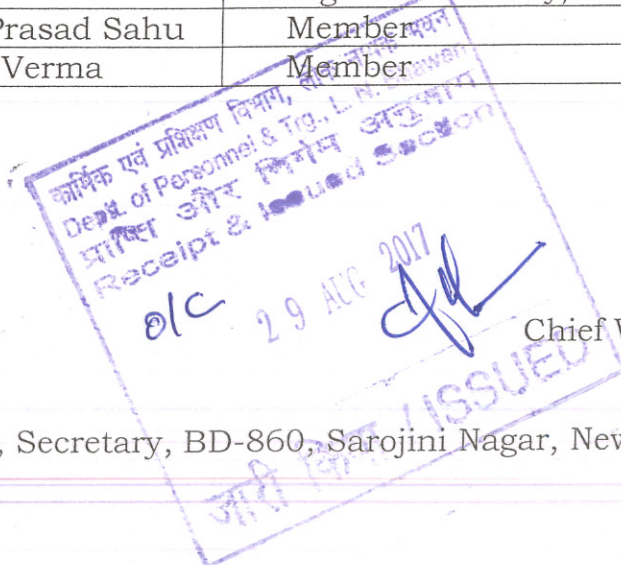 Prasad Sahu Member
Verma Member
कार्मिक एवं प्रशिक्षण विभाग, लोक नायक भवन
Deptt. of Personnel & Trg., L. N. Bhawan
प्राप्ति और निर्गम अनुभाग
Receipt & Issued Section
o/c
29 AUG 2017
Chief
जारी किया / ISSUED
, Secretary, BD-860, Sarojini Nagar, New